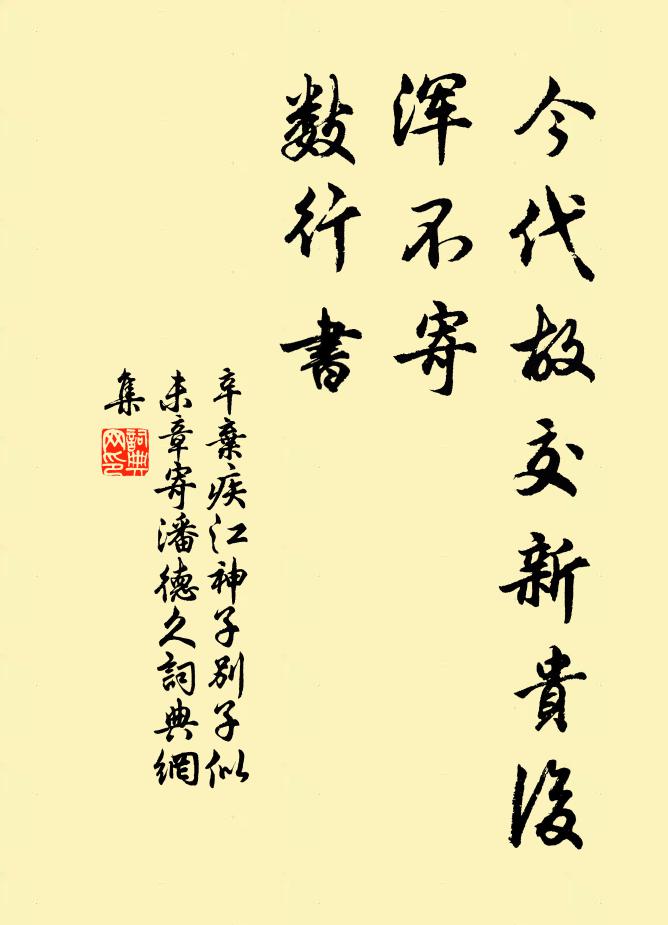 今代故交新貴後
浑不寄
数行書
辛棄疾江神子别子似
未章寄潘德久詞典網
集
詞典
网印